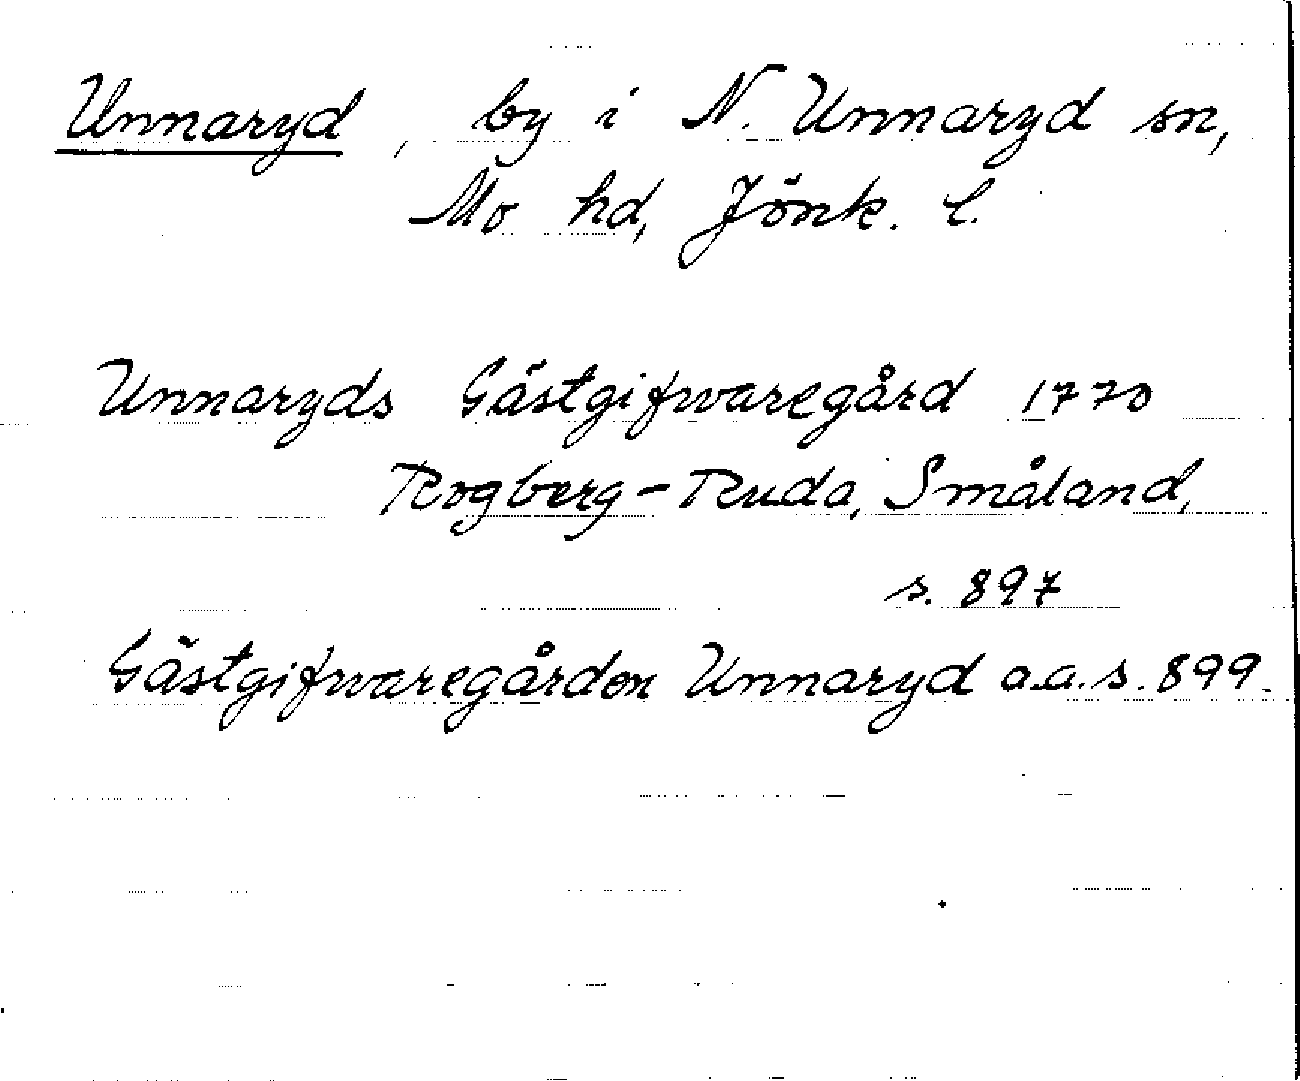 Unnaryd, by i N. Unnaryd sn,
Mo hd, Jönk. l.
Unnaryds Gästgifwaregård 1770
Rogberg-Ruda, Småland,
s. 897
Gästgifwaregården Unnaryd a.a.s. 899.